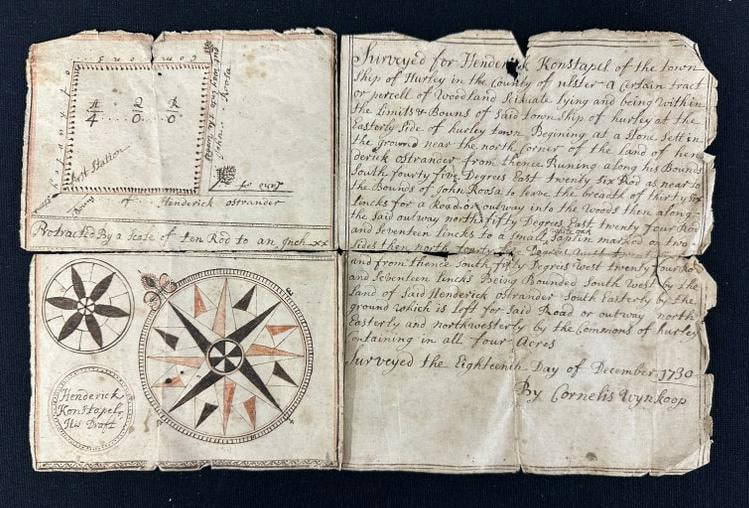 Commons
A R R
4 .. 0 ... 0
first Station
of Henderick ostrander
Land of
John Roosa
Protracted By a Scale of ten Rod to an Inch xx
Henderick
Konstapel
His Draft
Surveyed for Henderick Konstapel of the town
Ship of Hurley in the County of ulster a Certain tract
or percell of Woodland Scituate lying and being within
the limits & Bouns of Said town Ship of hurley at the
Easterly Side of hurley town Begining at a Stone Sett in
the ground near the north corner of the land of hen
derick ostrander from thence Runing along his Bounds
South fourty five Degrees East twenty Six Rod as near to
the Bounds of John Roosa to leave the breadth of thirty Six
lincks for a Road or outway into the Woods then along
the Said outway north fifty Degrees East twenty four Rod
and Seventeen lincks to a Small Saplin marked on two
Sides then north fourty five Degrees West twenty
and from thence South fifty Degrees West twenty four Ro
and Seventeen lincks Being Bounded South West by the
land of Said Henderick ostrander South Easterly by the
ground which is left for Said Road or outway north
Easterly and northwesterly by the Commons of hurley
Containing in all four Acres
Surveyed the Eighteenth Day of December 1730
By Cornelis Wynkoop